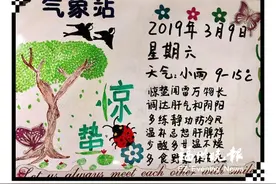 气象站
2019年3月9日
星期六
天气：小雨 9-15℃
惊蛰
惊蛰闻雷万物长
调达肝气和阴阳
多练静功防冷风
温补忌怒肝脾祥
少酸多甘温不燥
多食野
Let us always meet each other with smile